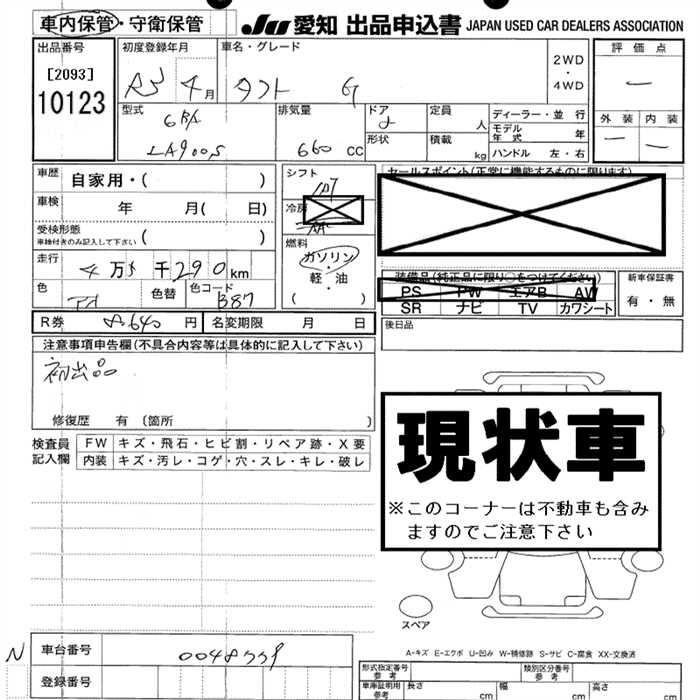 車内保管・守衛保管 JU 愛知 出品申込書 JAPAN USED CAR DEALERS ASSOCIATION
出品番号 初度登録年月 車名・グレード 2WD・4WD 評価点
[2093] R5 4月 タフト G ー
10123
型式 排気量 ドア 定員 人 ディーラー・並行 外装 内装
6BA モデル年式 年 ー ー
LA900S 660 CC 形状 積載 kg ハンドル 左・右
車歴 自家用・( ) シフト セールスポイント(正常に機能するものに限ります)
車検 年 月( 日) 冷房
受検形態 ( )
車検付きのみ記入して下さい
燃料
走行 4万 千290km ガソリン・軽・油 ( )
装備品(純正品に限り○をつけてください) 新車保証書
色 色替 色コード B87 PS PW エアB AW 有・無
SR ナビ TV カワシート
R券 8,640円 名変期限 月 日 後日品
注意事項申告欄(不具合内容等は具体的に記入して下さい)
初出品
修復歴 有 〔箇所 〕
現状車
※このコーナーは不動車も含みますのでご注意下さい
検査員記入欄 FW キズ・飛石・ヒビ割・リペア跡・X要
内装 キズ・汚レ・コゲ・穴・スレ・キレ・破レ
スペア
N 車台番号
A-キズ E-エクボ U-凹み W-補修跡 S-サビ C-腐食 XX-交換済
登録番号 形式指定番号 参考 類別区分番号 参考
車庫証明用 参考 長さ cm 幅 cm 高さ cm